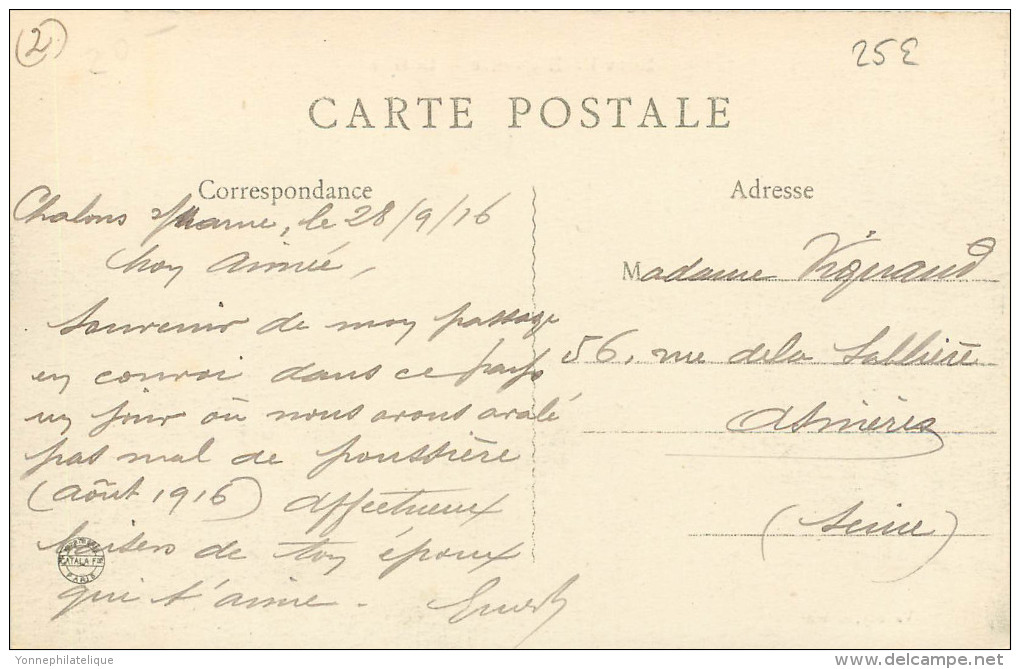 (2)
25E
CARTE POSTALE
Correspondance
Adresse
Chalons s/Marne, le 28/9/16
Mon aimée,
Souvenir de mon passage
en convoi dans ce pays
un jour où nous avons avalé
pas mal de poussière
(Août 1916) affectueux
baisers de ton époux
qui t'aime.
Madame Vignaud
56, rue de la Sablière
Asnières
(Seine)
CATALA FRES
PARIS
Yonnephilatelique
delcampe.net